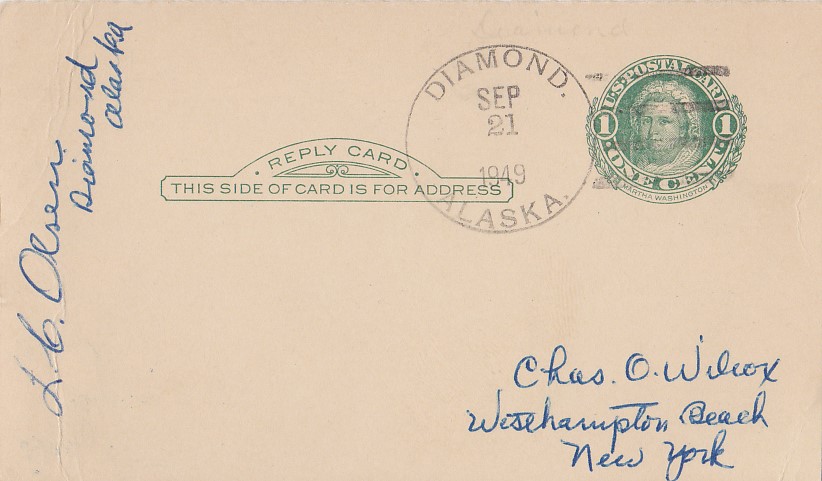 DIAMOND.
SEP
21
1949
ALASKA.
U.S. POSTAL CARD
1 1
ONE CENT
MARTHA WASHINGTON
REPLY CARD
THIS SIDE OF CARD IS FOR ADDRESS
L. C. Olsen
Diamond
Alaska
Chas. O. Wilcox
Westhampton Beach
New York